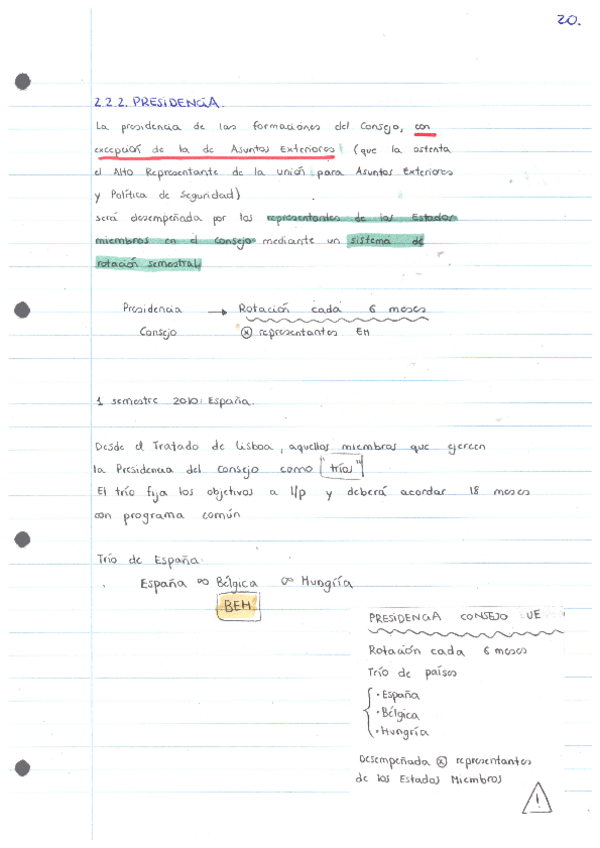 20.
2.2.2. PRESIDENCIA.
La presidencia de las formaciones del Consejo, con
excepción de la de Asuntos Exteriores (que la ostenta
el Alto Representante de la unión para Asuntos Exteriores
y Política de Seguridad)
será desempeñada por los representantes de los Estados
miembros en el consejo mediante un sistema de
rotación semestral
Presidencia → Rotación cada 6 meses
Consejo ⓧ representantes EM
1 semestre 2010: España.
Desde el Tratado de Lisboa, aquellos miembros que ejercen
la Presidencia del consejo como "tríos"
El trío fija los objetivos a l/p y deberá acordar 18 meses
con programa común
Trío de España.
España ∞ Bélgica ∞ Hungría
BEH
PRESIDENCIA CONSEJO UE
Rotación cada 6 meses
Trío de países
· España
· Bélgica
· Hungría
Desempeñada ⓧ representantes
de los Estados Miembros
!